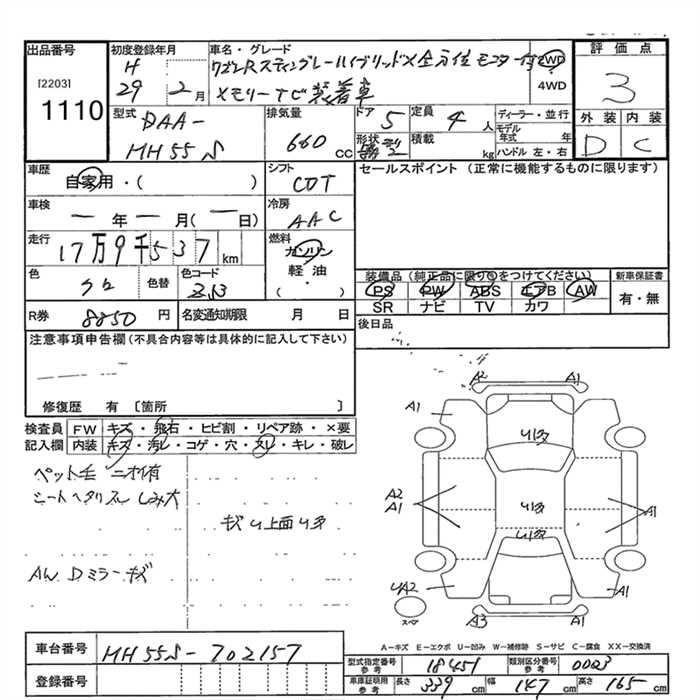 出品番号
[2203]
1110
初度登録年月
H
29年 2月
車名・グレード
ワゴンRスティングレーハイブリッドX全方位モニター付
メモリーナビ装着車
2WD
4WD
評価点
3
外装 内装
D C
型式
DAA-
MH55S
排気量
660 cc
ドア
5
形状
定員
4人
積載
kg
ディーラー・並行
モデル年式 年
ハンドル 左・右
車歴
自家用・( )
シフト
CVT
セールスポイント (正常に機能するものに限ります)
車検
年 月 ( 日)
冷房
AAC
走行
17万9千537km
燃料
ガソリン
軽油
( )
色
クロ
色替
色コード
ZJ3
装備品 (純正品に限り○をつけてください)
PS PW ABS エアB AW
SR ナビ TV カワ
新車保証書
有・無
R券
8850円
名変通知期限 月 日
後日品
注意事項申告欄(不具合内容等は具体的に記入して下さい)
修復歴 有 〔箇所 〕
検査員記入欄
FW キズ・飛石・ヒビ割・リペア跡・×要
内装 キズ・汚レ・コゲ・穴・スレ・キレ・破レ
ペット毛 ニオイ有
シートヘタリスレ しみ大
キズ U 上面 U多
AW Dミラーキズ
A2 A1
A1 A1
U1多
A2
A1
U1多
A1
U1多
UA2 A1
A3 A1
スペア
A-キズ E-エクボ U-凹み W-補修跡 S-サビ C-腐食 XX-交換済
車台番号
MH55S-702157
登録番号
型式指定番号 参考
18451
類別区分番号 参考
0003
車庫証明用 参考
長さ 339cm 幅 147cm 高さ 165cm